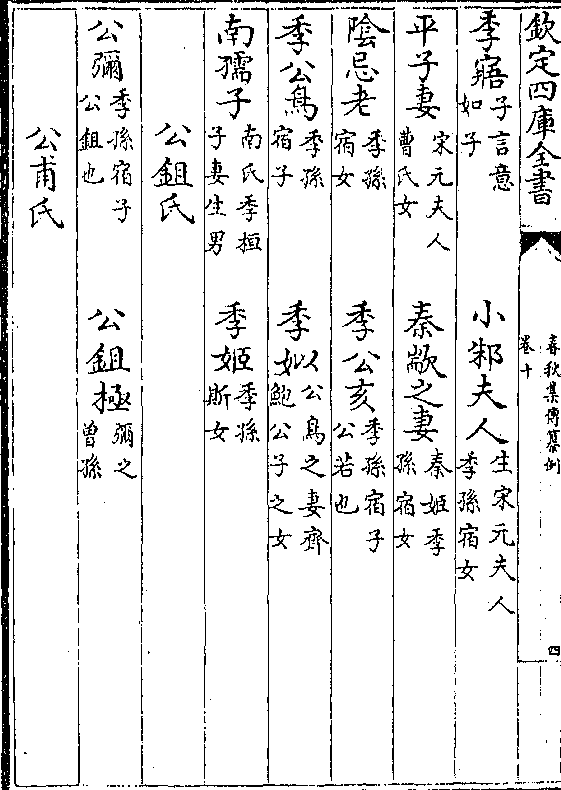 欽定四庫全書
春秋集傳纂例
卷十
四
季寤 子言意如子 小邾夫人 生宋元夫人季孫宿女
平子妻 宋元夫人曹氏女 秦之妻 秦姬季孫宿女
陰忌老 季孫宿女 季公亥 季孫宿子公若也
季公鳥 季孫宿子 季姒 公鳥之妻齊鮑公子之女
南孺子 南氏季桓子妻生男 季姬 季孫斯女
公鉏氏
公彌 季孫宿子公鉏也 公鉏極 彌之曽孫
公甫氏